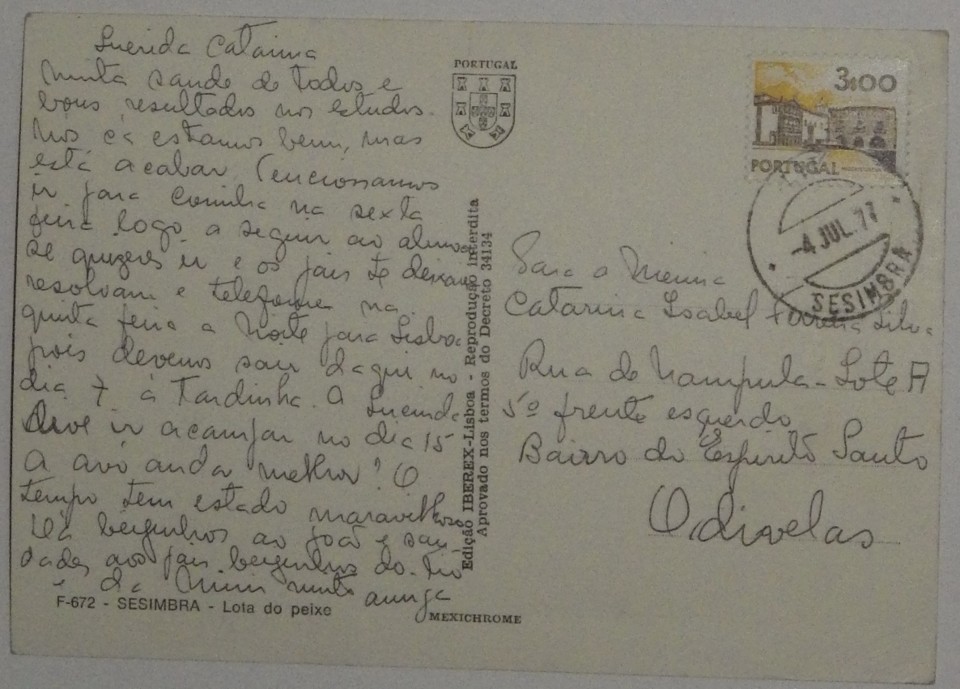 Querida Catarina
muita saude de todos e
bons resultados nos estudos.
Nós cá estamos bem, mas
está a acabar. Tencionamos
ir para Coimbra na sexta
feira logo a seguir ao almoço
se quizeres ir e os pais te deixam
resolvam e telefone na
quinta feira a noite para Lisboa
pois devemos sair daqui no
dia 7 à Tardinha. A Lucinda
deve ir acampar no dia 15
A avó anda melhor! O
tempo tem estado maravilhoso
Dá beijinhos ao João e sau
dades aos pais beijinhos do Tio
e da Mimi muito amiga
F-672 - SESIMBRA - Lota do peixe
PORTUGAL
Edição IBEREX-Lisboa - Reprodução interdita
Aprovado nos termos do Decreto 34134
MEXICHROME
3$00
PORTUGAL
-4 JUL. 77
SESIMBRA
Para a Menina
Catarina Isabel Ferreira Silva
Rua de Nampula - Lote A
5º frente esquerdo
Bairro do Espirito Santo
Odivelas